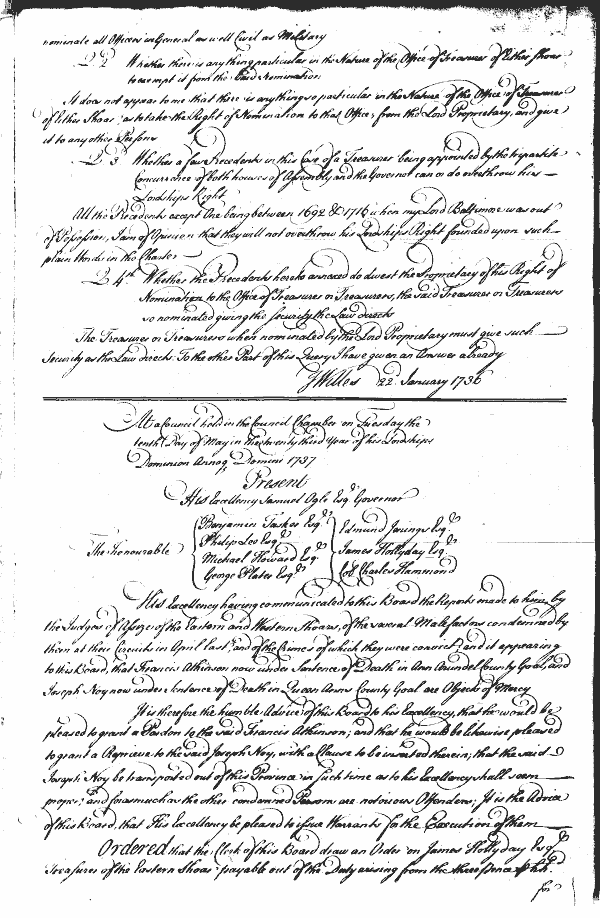 nominate all Officers in General as well Civil as Military
Q 2d Whether there is any thing particular in the Nature of the Office of Treasurer of Either Shoar
to exempt it from the said Nomination
It does not appear to me that there is any thing so particular in the Nature of the Office of Treasurer
of Either Shoar as to take the Right of Nomination to that Office, from the Lord Proprietary, and give
it to any other Persons
Q 3d Whether a few Precedents in this Case of a Treasurer being appointed by the tripartite
Concurrence of both houses of Assembly and the Governor can or do overthrow his
Lordships Right
All the Precedents except One being between 1692 & 1716 when my Lord Baltimore was out
of Possession, I am of Opinion that they will not overthrow his Lordships Right founded upon such
plain Words in the Charter
Q 4th Whether the Precedents hereto annexed do divest the Proprietary of his Right of
Nomination to the Office of Treasurer or Treasurers, the said Treasurer or Treasurers
so nominated giving the security the Law directs
The Treasurer or Treasurers when nominated by the Lord Proprietary must give such
Security as the Law directs. To the other Part of this Query I have given an Answer already
J Willes 22 January 1736
At a Council held in the Council Chamber on Tuesday the
tenth Day of May in the twenty third Year of his Lordships
Dominion Annoq Domini 1737
Present
His Excellency Samuel Ogle Esqr Governor
Benjamin Tasker Esqr Edmund Jenings Esqr
The Honourable Philip Lee Esqr James Hollyday Esqr
Michael Howard Esqr Col Charles Hammond
George Plater Esqr
His Excellency having communicated to this Board the Reports made to him by
the Judges of Assize of the Eastern and Western Shoars, of the several Malefactors condemned by
them at their Circuits in April last and of the Crimes of which they were convict, and it appearing
to this Board, that Francis Atkinson now under Sentence of Death in Ann Arundel County Goal, and
Joseph Noy now under Sentence of Death in Queen Anns County Goal are Objects of Mercy
It is therefore the humble Advice of this Board to his Excellency, that he would be
pleased to grant a Pardon to the said Francis Atkinson; and that he would be likewise pleased
to grant a Reprieve to the said Joseph Noy, with a Clause to be inserted therein, that the said
Joseph Noy be transported out of this Province in such time as to his Excellency shall seem
proper; and forasmuch as the other condemned Persons are notorious Offenders; It is the Advice
of this Board, that His Excellency be pleased to issue Warrants for the Execution of them
Ordered that the Clerk of this Board draw an Order on James Hollyday Esqr
Treasurer of the Eastern Shoar payable out of the Duty arising from the three pence
for